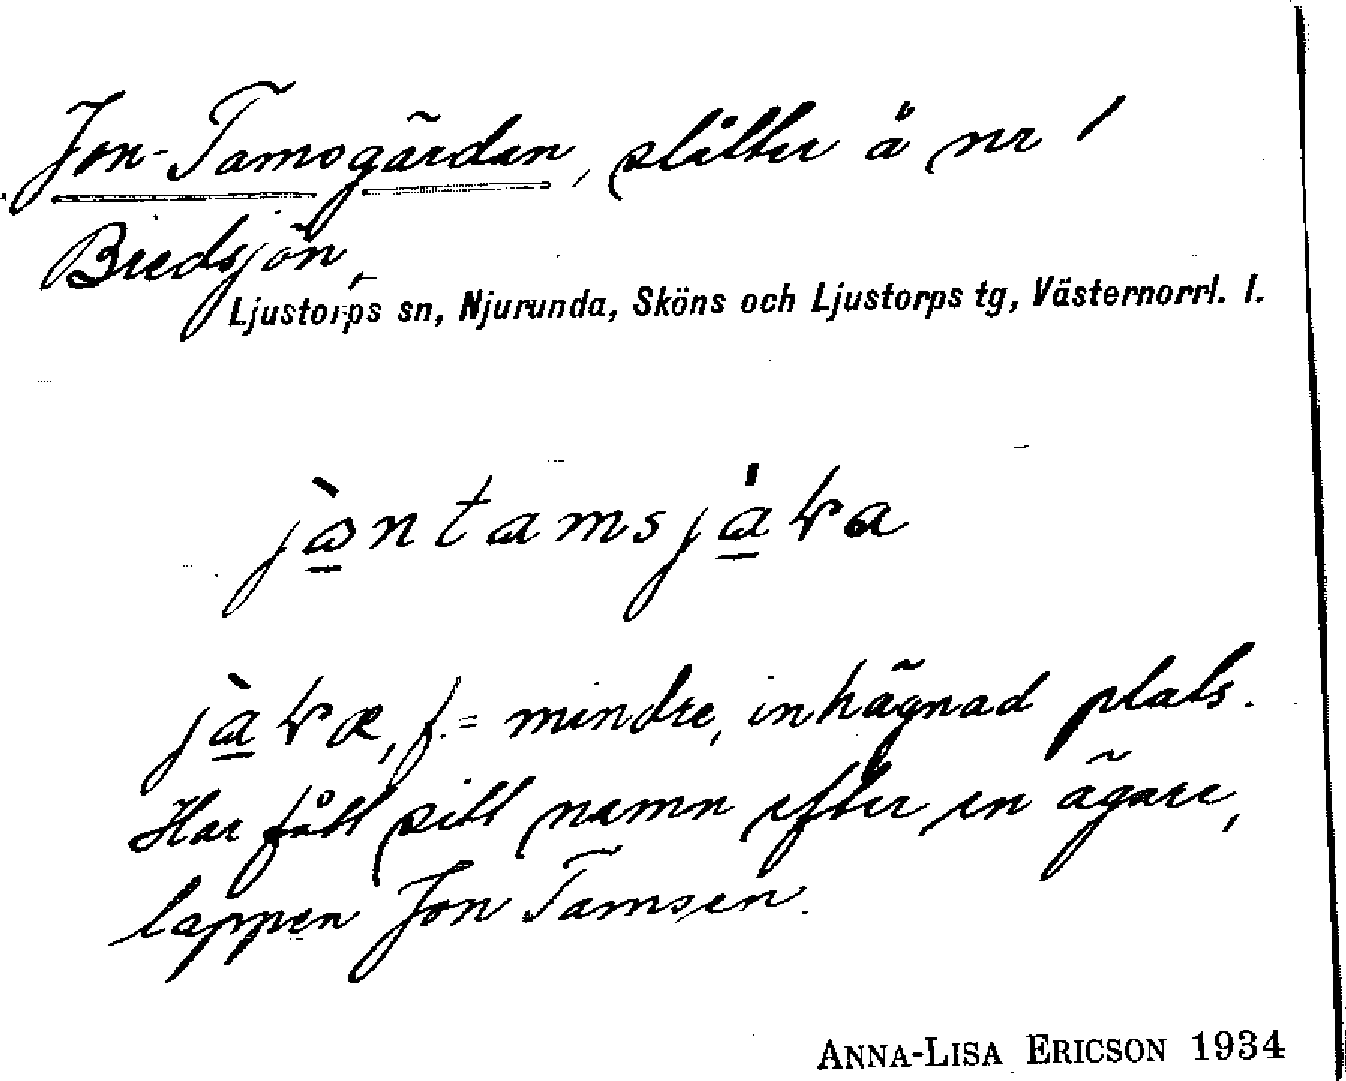 Jon-Tamsgärdan, slåtter å nr 1
Bredsjön,
Ljustorps sn, Njurunda, Sköns och Ljustorps tg, Västernorrl. l.
f. = mindre, inhägnad plats.
Har fått sitt namn efter en ägare,
lappen Jon Tamsen.
ANNA-LISA ERICSON 1934